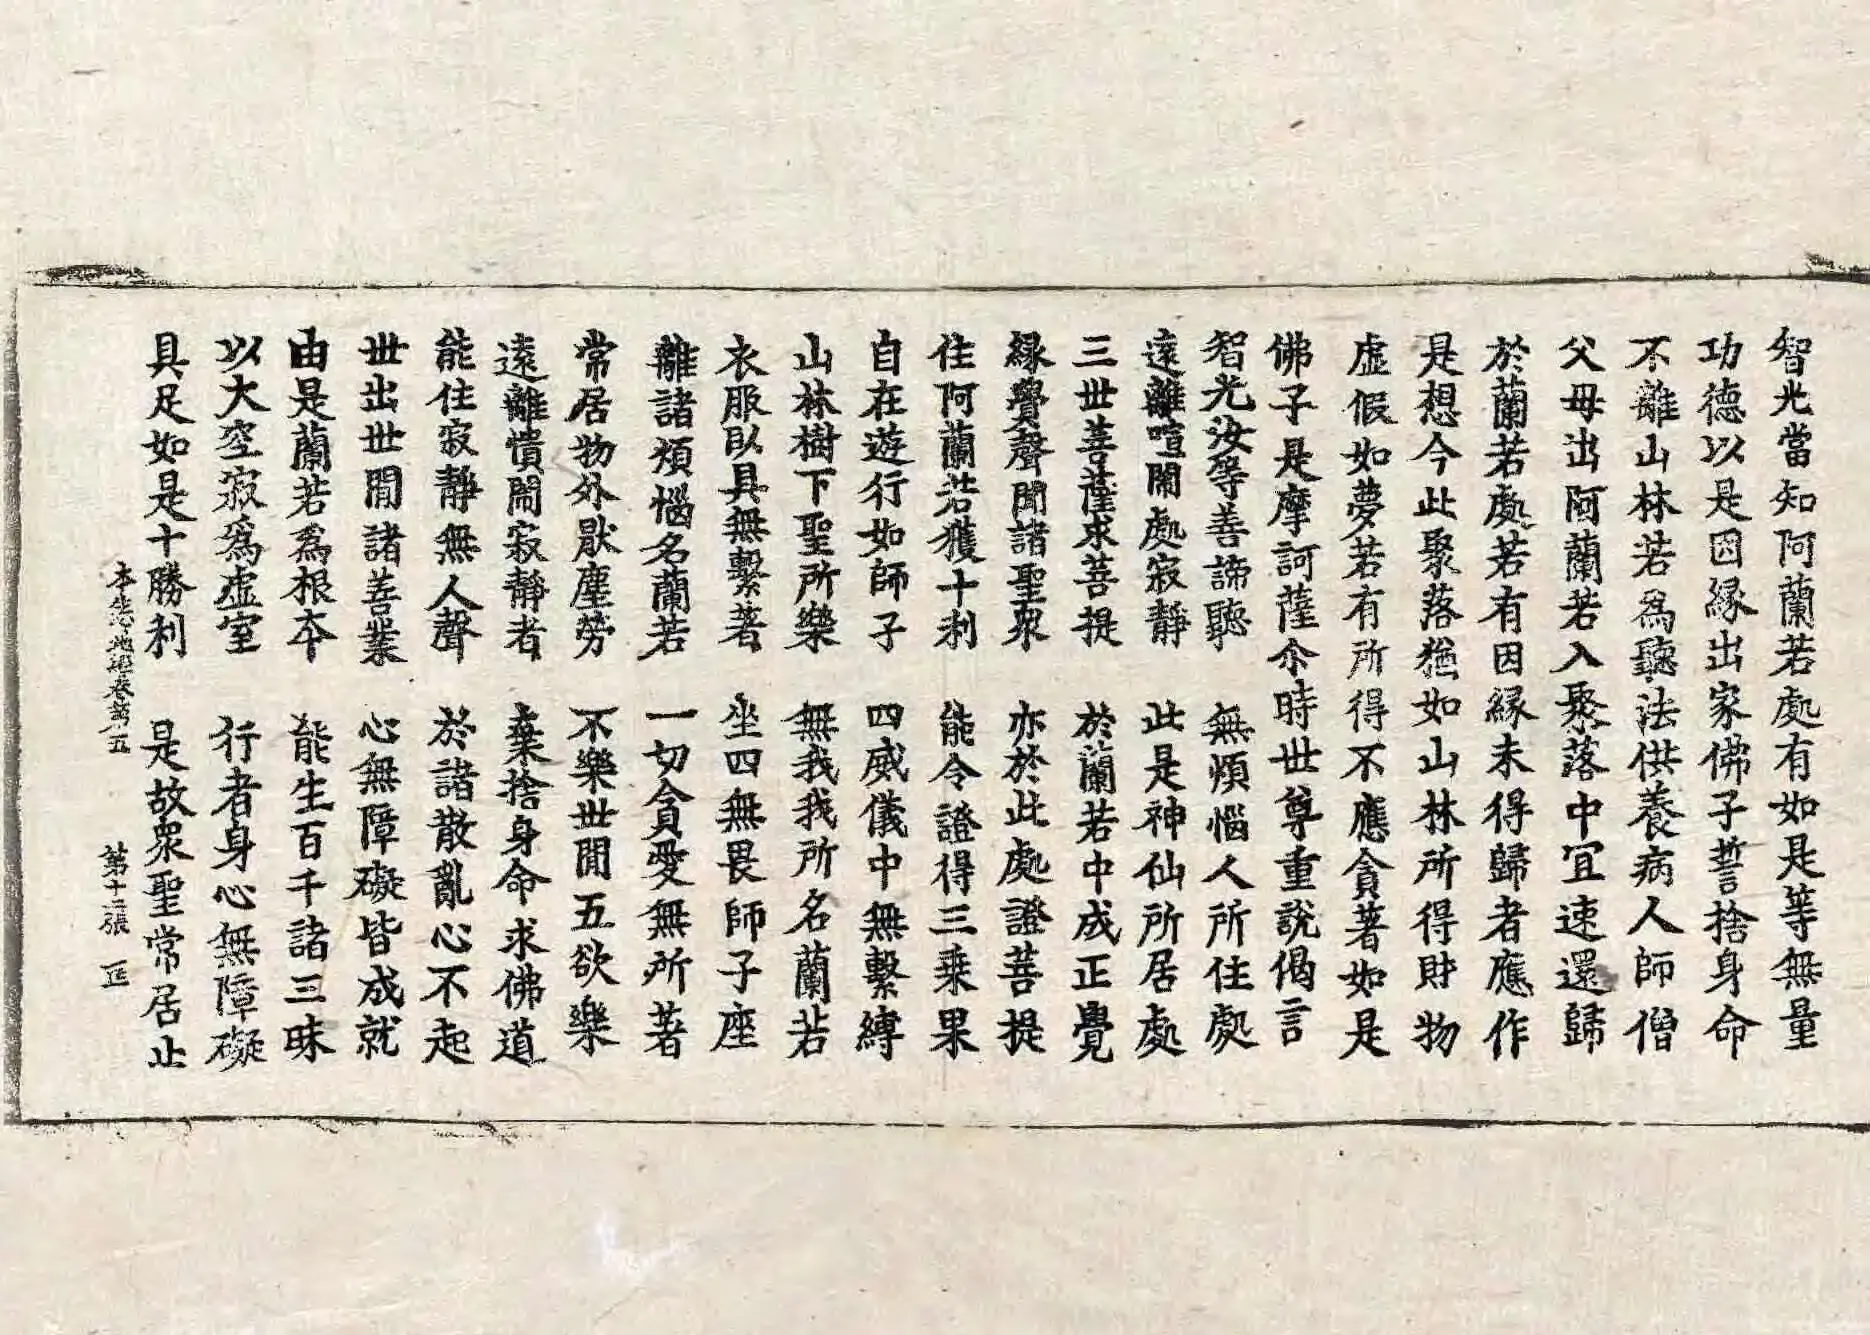 智光當知阿蘭若處有如是等無量
功德以是因緣出家佛子誓捨身命
不離山林若為聽法供養病人師僧
父母出阿蘭若入聚落中宜速還歸
於蘭若處若有因緣未得歸者應作
是想今此聚落猶如山林所得財物
虛假如夢若有所得不應貪著如是
佛子是摩訶薩尒時世尊重說偈言
智光汝等善諦聽 無煩惱人所住處
遠離喧閙處寂靜 此是神仙所居處
三世菩薩求菩提 於蘭若中成正覺
緣覺聲聞諸聖眾 亦於此處證菩提
住阿蘭若獲十利 能令證得三乘果
自在遊行如師子 四威儀中無繫縛
山林樹下聖所樂 無我我所名蘭若
衣服臥具無繫著 坐四無畏師子座
離諸煩惱名蘭若 一切貪愛無所著
常居物外厭塵勞 不樂世閒五欲樂
遠離憒閙寂靜者 棄捨身命求佛道
能住寂靜無人聲 於諸散亂心不起
世出世閒諸善業 心無障礙皆成就
由是蘭若為根本 能生百千諸三昧
以大空寂為虛室 行者身心無障礙
具足如是十勝利 是故眾聖常居止
本生心地經卷第五 第十二張